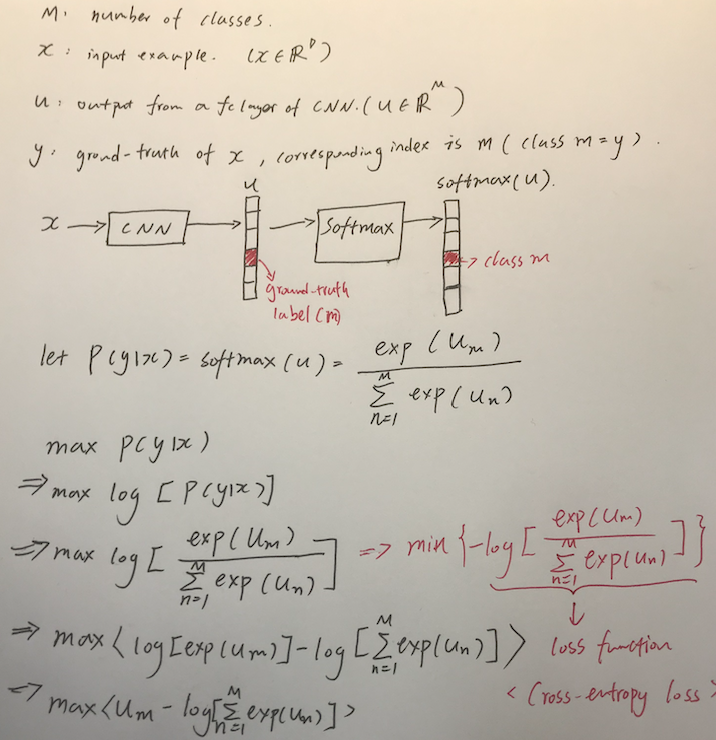 M: number of classes.
x: input example. (x ∈ ℝᴰ)
u: output from a fc layer of CNN. (u ∈ ℝᴹ)
y: ground-truth of x, corresponding index is m (class m=y).
u
softmax(u).
x → CNN → → Softmax →
→ class m
ground-truth
label (m)
let P(y|x) = softmax(u) = exp(u_m) / ∑_{n=1}^{M} exp(u_n)
max P(y|x)
⇒ max log [P(y|x)]
⇒ max log [ exp(u_m) / ∑_{n=1}^{M} exp(u_n) ] ⇒ min {-log [ exp(u_m) / ∑_{n=1}^{M} exp(u_n) ]}
⇒ max < log[exp(u_m)] - log [∑_{n=1}^{M} exp(u_n)] >
↓
loss function
< Cross-entropy loss >
⇒ max < u_m - log[∑_{n=1}^{M} exp(u_n)] >